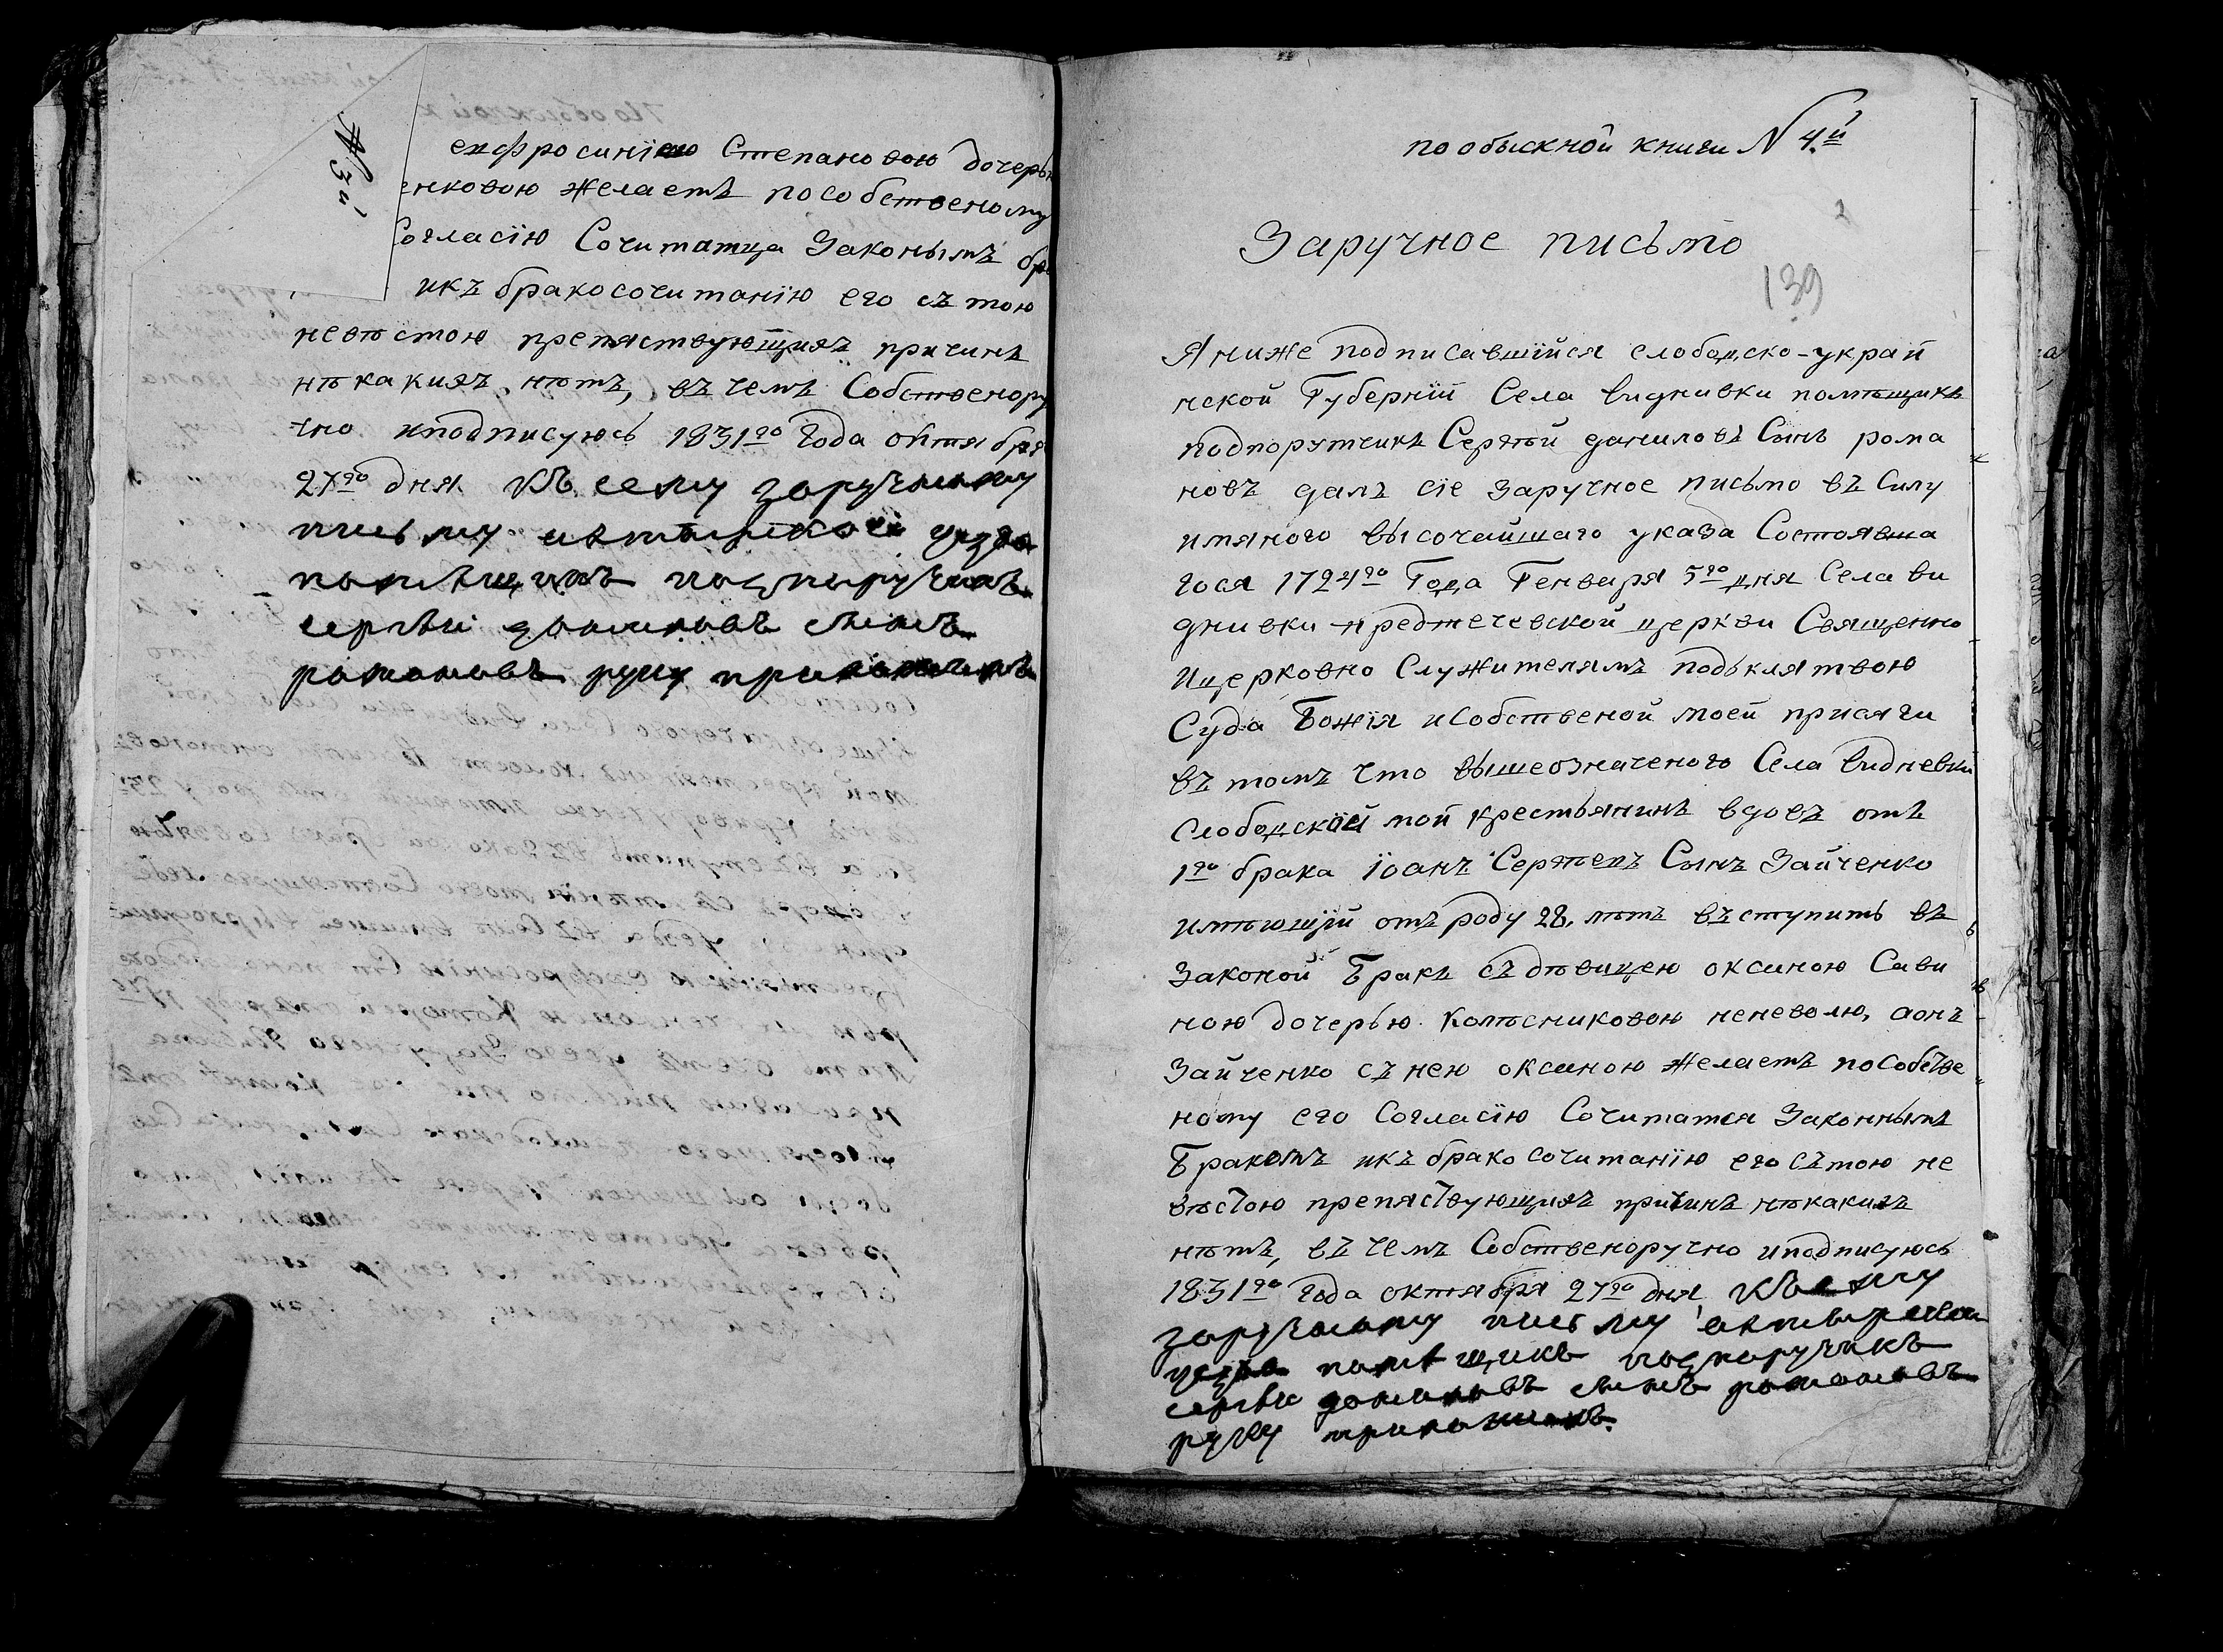 N 3й
евфросинїею Степановою дочерью
енковою желаетъ пособственому
Согласїю Сочитатца Законымъ бра
икъ бракосочитанїю его съ тою
невѣстою препяствующихъ причинъ
нѣкакихъ нѣтъ, въ чемъ Собственору
чно иподписуюсь 1831го Года октября
27го дня. Къ сему заручному
письму ахтырскои уезда
помѣщикъ подпоручикъ
сергѣи даниловъ сынъ
романовъ руку приложилъ
пообыскной книги N 4й
2
Заручное письмо
139
Я ниже подписавшїйся слободско-украй
нской Губернїй Села видневки помѣщикъ
подпорутчикъ Сергѣй даниловъ Сынъ рома
новъ далъ сїе заручное письмо въ Силу
имяного высочайшаго указа Состоявша
гося 1724го Года Генваря 5го дня Села ви
дневки предтечевской церкви Священно
ицерковно Служителямъ подъклятвою
Суда Божїя иСобственой моей присяги
въ томъ что вышеозначеного Села видневки
Слободской мой крестьянинъ вдовъ отъ
1го брака їоанъ Сергѣевъ Сынъ Зайченко
имѣющїй отъ роду 28. лѣтъ въступить въ
законой Бракъ съ дѣвицею оксиною Сави
ною дочерью Колѣсниковою неневолю, аонъ
Зайченко съ нею оксиною желаетъ поСобстве
ному его Согласїю Сочитатся Законнымъ
Бракомъ икъ бракосочитанїю его сътою не
вѣстою препяствующихъ причинъ нѣкакихъ
нѣтъ, въ чемъ Собственоручно иподписуюсь
1831го Года октября 27го дня Къ сему
заручному письму ахтырскои
уезда помѣщикъ подпоручикъ
сергѣи даниловъ сынъ романовъ
руку приложилъ.